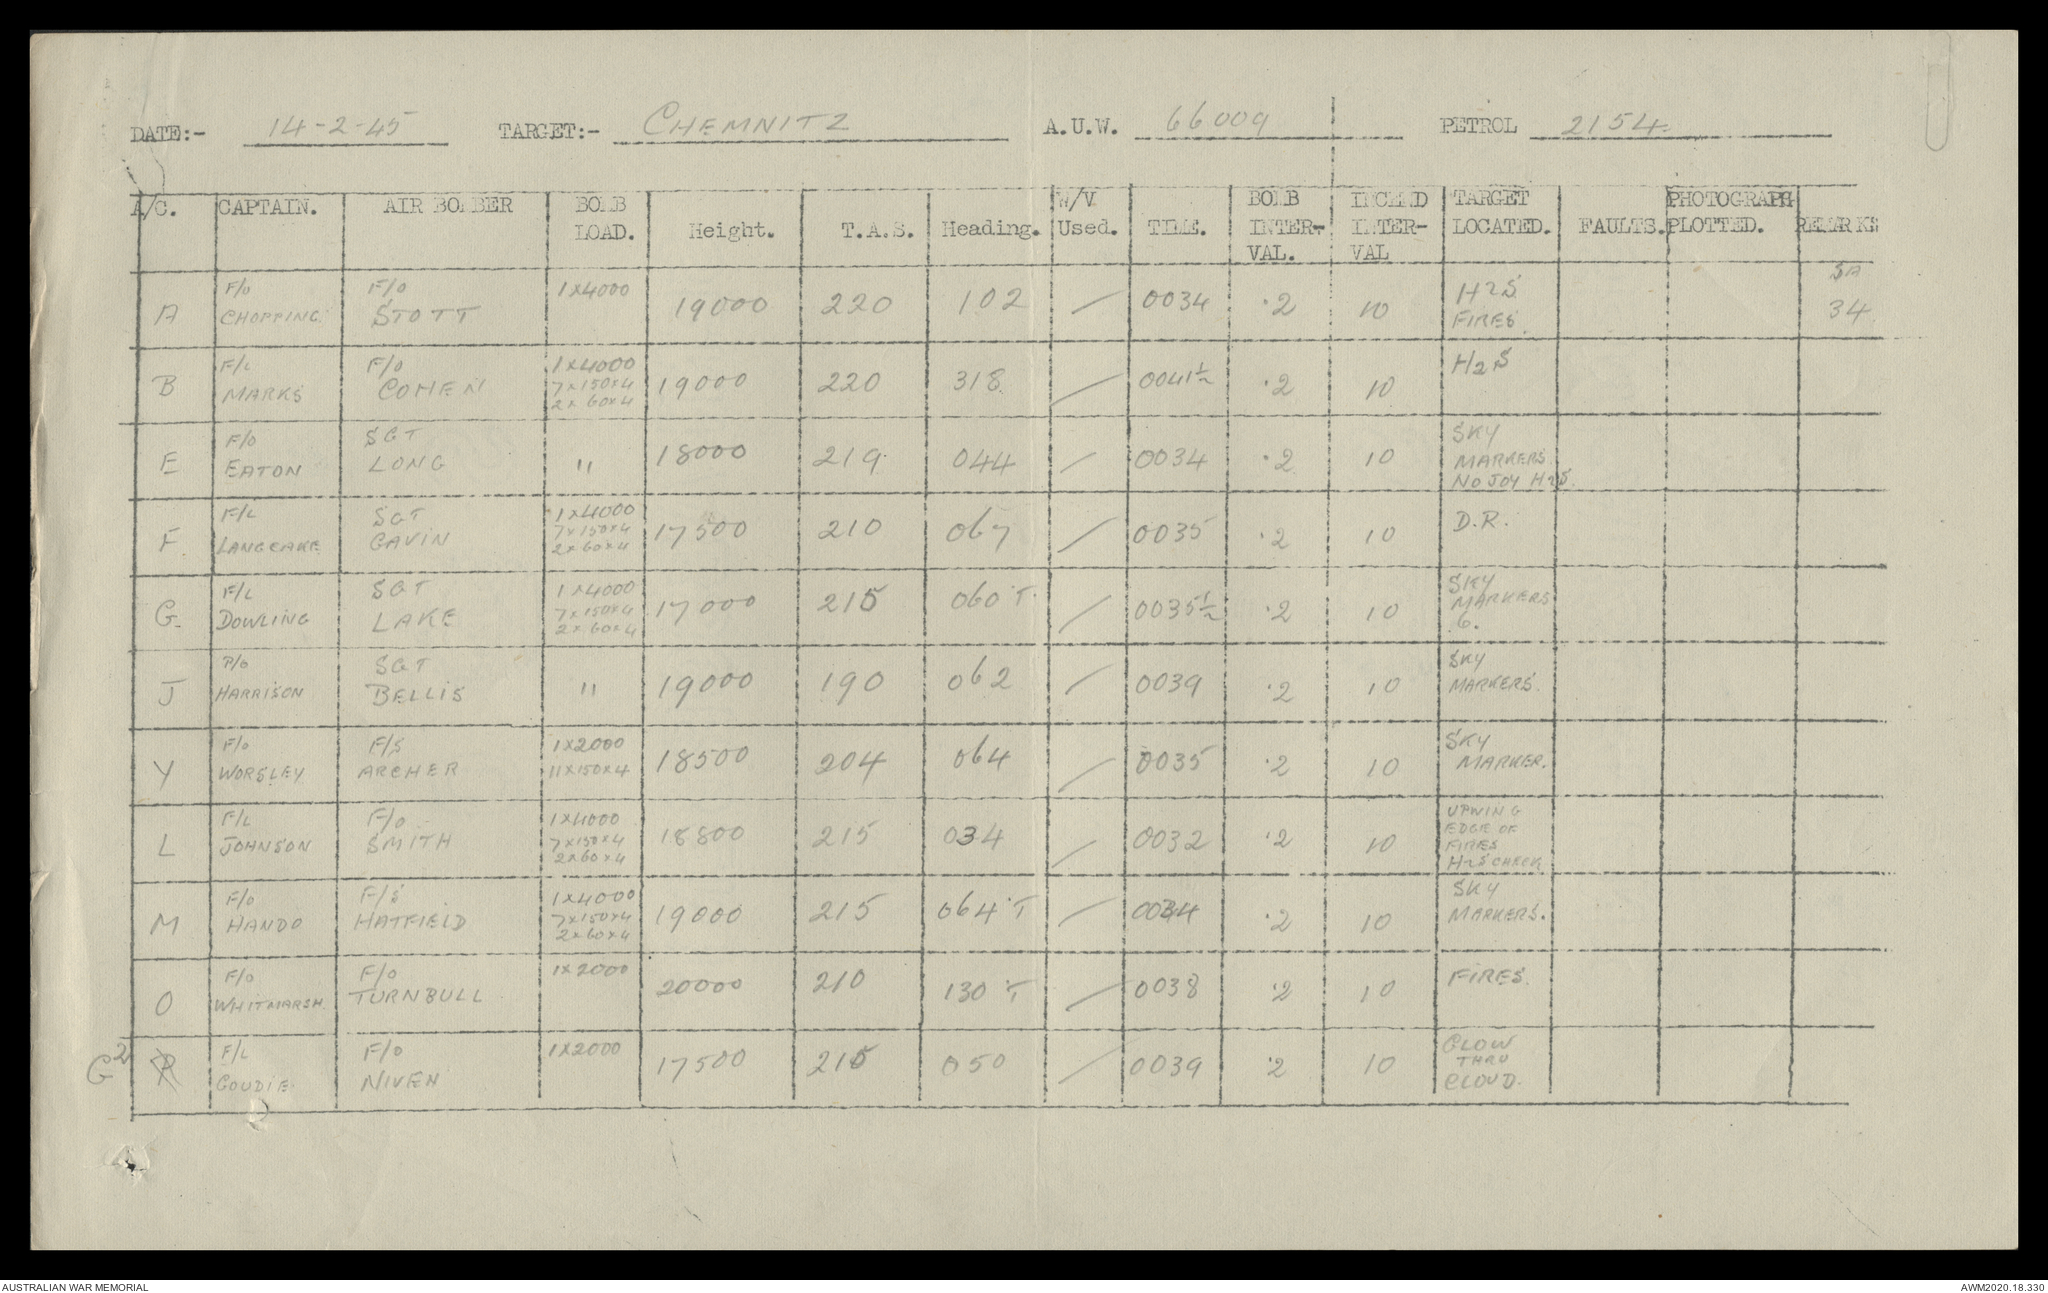 DATE:- 14-2-45 TARGET:- CHEMNITZ A.U.W. 66009 PETROL 2154
A/C. CAPTAIN. AIR BOMBER BOMB LOAD. Height. T.A.S. Heading. W/V Used. TIME. BOMB INTER-VAL. INCEND INTER-VAL TARGET LOCATED. FAULTS. PHOTOGRAPH PLOTTED. REMARKS
A F/O CHOPPING F/O STOTT 1x4000 19000 220 102 / 0034 .2 10 H2S FIRES. 34
B F/L MARKS F/O COHEN 1x4000 7x150x4 2x60x4 19000 220 318 / 0041½ .2 10 H2S
E F/O EATON SGT LONG " 18000 219 044 / 0034 .2 10 SKY MARKERS. NO JOY H2S.
F. F/L LANGCAKE SGT GAVIN 1x4000 7x150x4 2x60x4 17500 210 067 / 0035 .2 10 D.R.
G. F/L DOWLING SGT LAKE 1x4000 7x150x4 2x60x4 17000 215 060 T. / 0035½ .2 10 SKY MARKERS 6.
J P/O HARRISON SGT BELLIS " 19000 190 062 / 0039 .2 10 SKY MARKERS.
Y F/O WORSLEY F/S ARCHER 1x2000 11x150x4 18500 204 064 / 0035 .2 10 SKY MARKER.
L F/L JOHNSON F/O SMITH 1x4000 7x150x4 2x60x4 18800 215 034 / 0032 .2 10 UPWING EDGE OF FIRES H2S CHECK
M F/O HANDO F/S HATFIELD 1x4000 7x150x4 2x60x4 19000 215 064 T / 0034 .2 10 SKY MARKERS.
O F/O WHITMARSH. F/O TURNBULL 1x2000 20000 210 130 T / 0038 .2 10 FIRES.
G2 R F/L GOUDIE. F/O NIVEN 1x2000 17500 215 050 / 0039 .2 10 GLOW THRU CLOUD.
AUSTRALIAN WAR MEMORIAL AWM2020.18.330